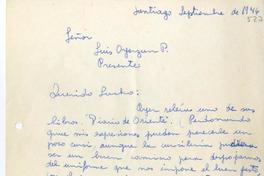 Santiago Septiembre de 1946
Señor
Luis Oyarzun P.
Presente
Querido Lucho:
Ayer releía uno de sus
libros. "Diario de Oriente". (Perdonando
que mis expresiones puedan parecerle un
poco cursi, aunque la cursilería pudiera
ser un buen camino para despojarnos
del uniforme que nos impone el buen gusto,